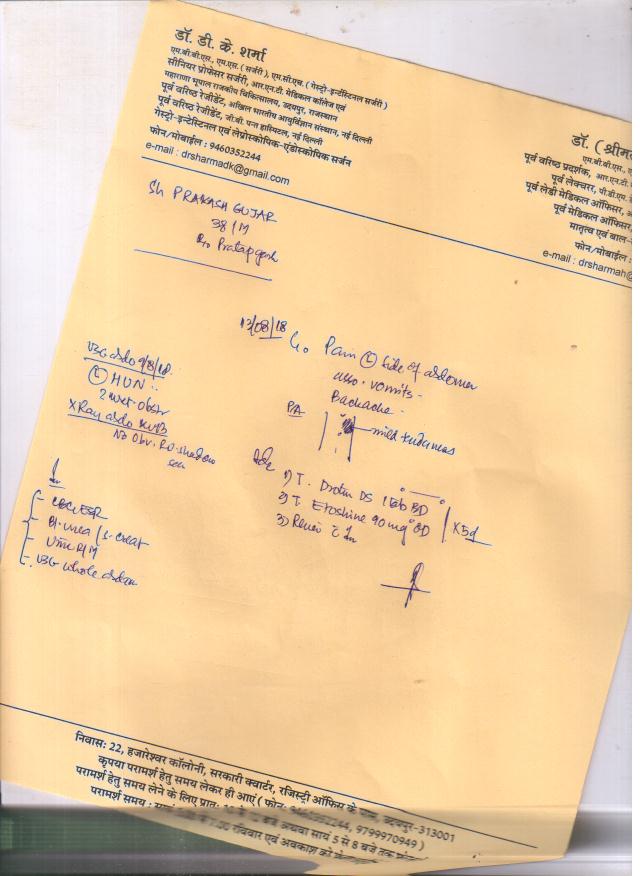 डॉ. डी. के. शर्मा
एम.बी.बी.एस., एम.एस. ( सर्जरी ), एम.सी.एच. ( गेस्ट्रो-इन्टेस्टिनल सर्जरी )
सीनियर प्रोफेसर सर्जरी, आर.एन.टी. मेडिकल कॉलेज एवं
महाराणा भूपाल राजकीय चिकित्सालय, उदयपुर, राजस्थान
पूर्व वरिष्ठ रेजीडेंट, अखिल भारतीय आयुर्विज्ञान संस्थान, नई दिल्ली
पूर्व वरिष्ठ रेजीडेंट, जी.बी. पन्त हास्पिटल, नई दिल्ली
गेस्ट्रो-इन्टेस्टिनल एवं लेप्रोस्कोपिक-एंडोस्कोपिक सर्जन
फोन/मोबाईल : 9460352244
e-mail : drsharmadk@gmail.com
डॉ. ( श्रीम
एम.बी.बी.एस.,
पूर्व वरिष्ठ प्रदर्शक, आर.एन.टी.
पूर्व लेक्चरर, पी.डी.एम.
पूर्व लेडी मेडिकल ऑफिसर,
पूर्व मेडिकल ऑफिसर,
मातृत्व एवं बाल-
फोन/मोबाईल :
e-mail : drsharmah@
Sh PRAKASH GUJAR
38/M
R/o Pratapgarh
13/08/18
C/o Pain (L) side of abdomen
asso. vomits -
Backache -
PA
mild tenderness
USG abdo 9/8/18
(L) HUN
X Ray abdo KUB
No Obv. RO shadow
seen
Adv
1) T. Drotin DS 1 tab BD
2) T. Etoshine 90 mg OD
X 5d
3) Review
CBC, ESR
Bl. urea / S. creat
Urine R/M
USG whole abdomen
निवास: 22, हजारेश्वर कॉलोनी, सरकारी क्वार्टर, रजिस्ट्री ऑफिस के पास, उदयपुर-313001
कृपया परामर्श हेतु समय लेकर ही आएं ( फोन: 9460352244, 9799970949 )
परामर्श हेतु समय लेने के लिए प्रातः बजे अथवा सायं 5 से 8 बजे तक
परामर्श समय : रविवार एवं अवकाश को